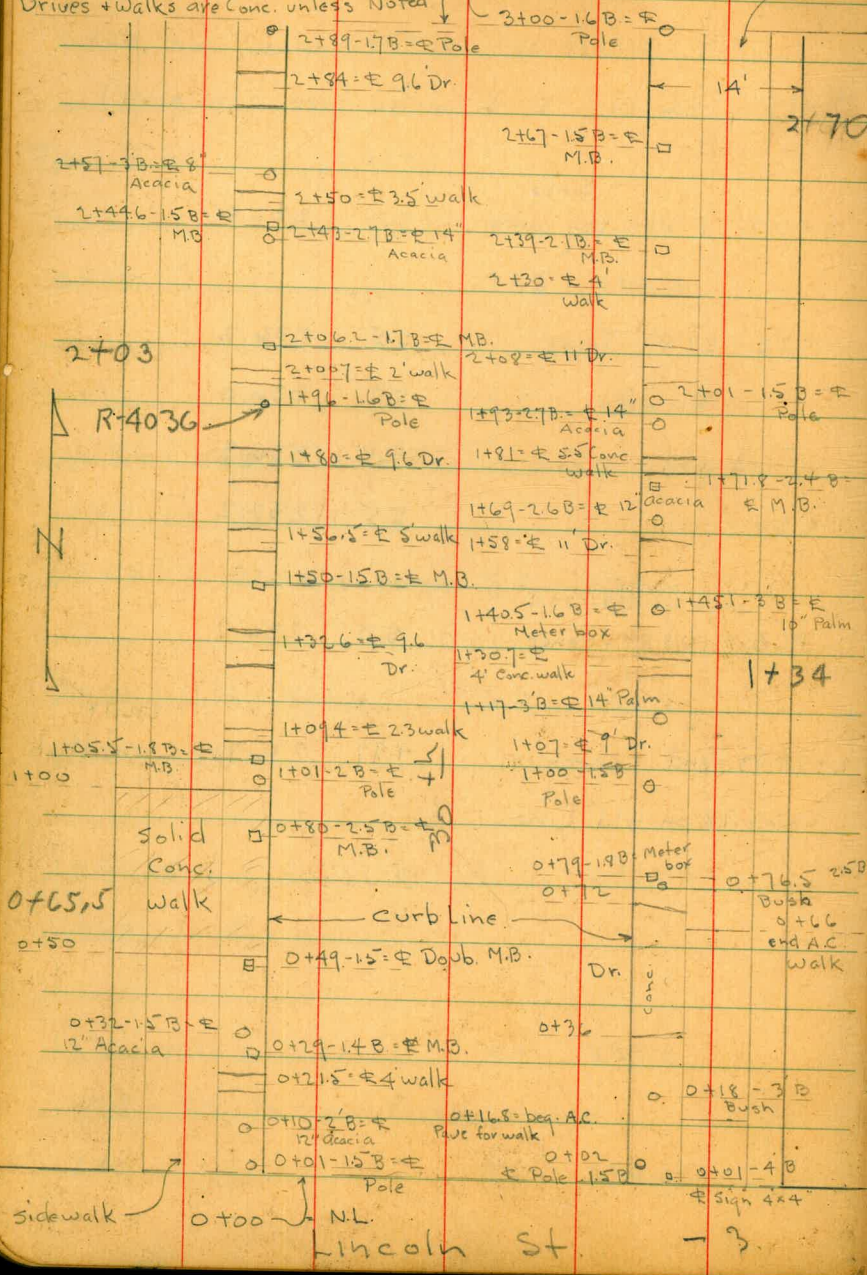 Drives + Walks are Conc. unless Noted
3+00 - 1.6 B. = ℄
Pole
2+89 - 1.7 B = ℄ Pole
2+84 = ℄ 9.6' Dr.
14'
2+70
2+67 - 1.5 B = ℄
M.B.
2+57 - 3' B. = ℄ 8"
Acacia
2+50 = ℄ 3.5' walk
2+44.6 - 1.5 B = ℄
M.B
2+43 - 2.7 B = ℄ 14"
Acacia
2+39 - 2.1 B. = ℄
M.B.
2+30 = ℄ 4'
Walk
2+06.2 - 1.7 B = ℄ M.B.
2+03
2+08 = ℄ 11' Dr.
2+00.7 = ℄ 2' walk
1+96 - 1.6 B = ℄
Pole
2+01 - 1.5 B = ℄
Pole
R-4036
1+93 - 2.7 B = ℄ 14"
Acacia
1+80 = ℄ 9.6 Dr.
1+81 = ℄ 5.5' Conc
Walk
1+71.8 - 2.4 B =
℄ M.B.
1+69 - 2.6 B = ℄ 12" Acacia
N
1+56.5 = ℄ 5' walk
1+58 = ℄ 11' Dr.
1+50 - 1.5 B = ℄ M.B.
1+40.5 - 1.6 B = ℄
Meter box
1+45.1 - 3' B = ℄
10" Palm
1+32.6 = ℄ 9.6
Dr.
1+30.7 = ℄
4' Conc. walk
1+34
1+17 - 3' B = ℄ 14" Palm
1+09.4 = ℄ 2.3 walk
1+05.5 - 1.8 B = ℄
M.B.
1+07 = ℄ 9' Dr.
1+00
1+01 - 2' B = ℄
Pole
1+00 - 1.5 B
Pole
Solid
Conc.
Walk
0+80 - 2.5 B = ℄
M.B.
30
0+79 - 1.8 B Meter
box
0+76.5 2.5 B
Bush
0+72
0+65,5
curb Line
0+66
end A.C.
Walk
0+50
0+49 - 1.5 = ℄ Doub. M.B.
Dr.
0+32 - 1.5 B = ℄
12" Acacia
0+36
0+29 - 1.4 B = ℄ M.B.
0+21.5 = ℄ 4' walk
0+18 - 3' B
Bush
0+10 - 2' B = ℄
12" Acacia
0+16.8 = beg. A.C.
Pave for walk
0+01 - 1.5 B = ℄
Pole
0+02
℄ Pole 1.5 B
0+01 - 4' B
℄ Sign 4"x4"
sidewalk
0+00
N.L.
Lincoln St
- 3.